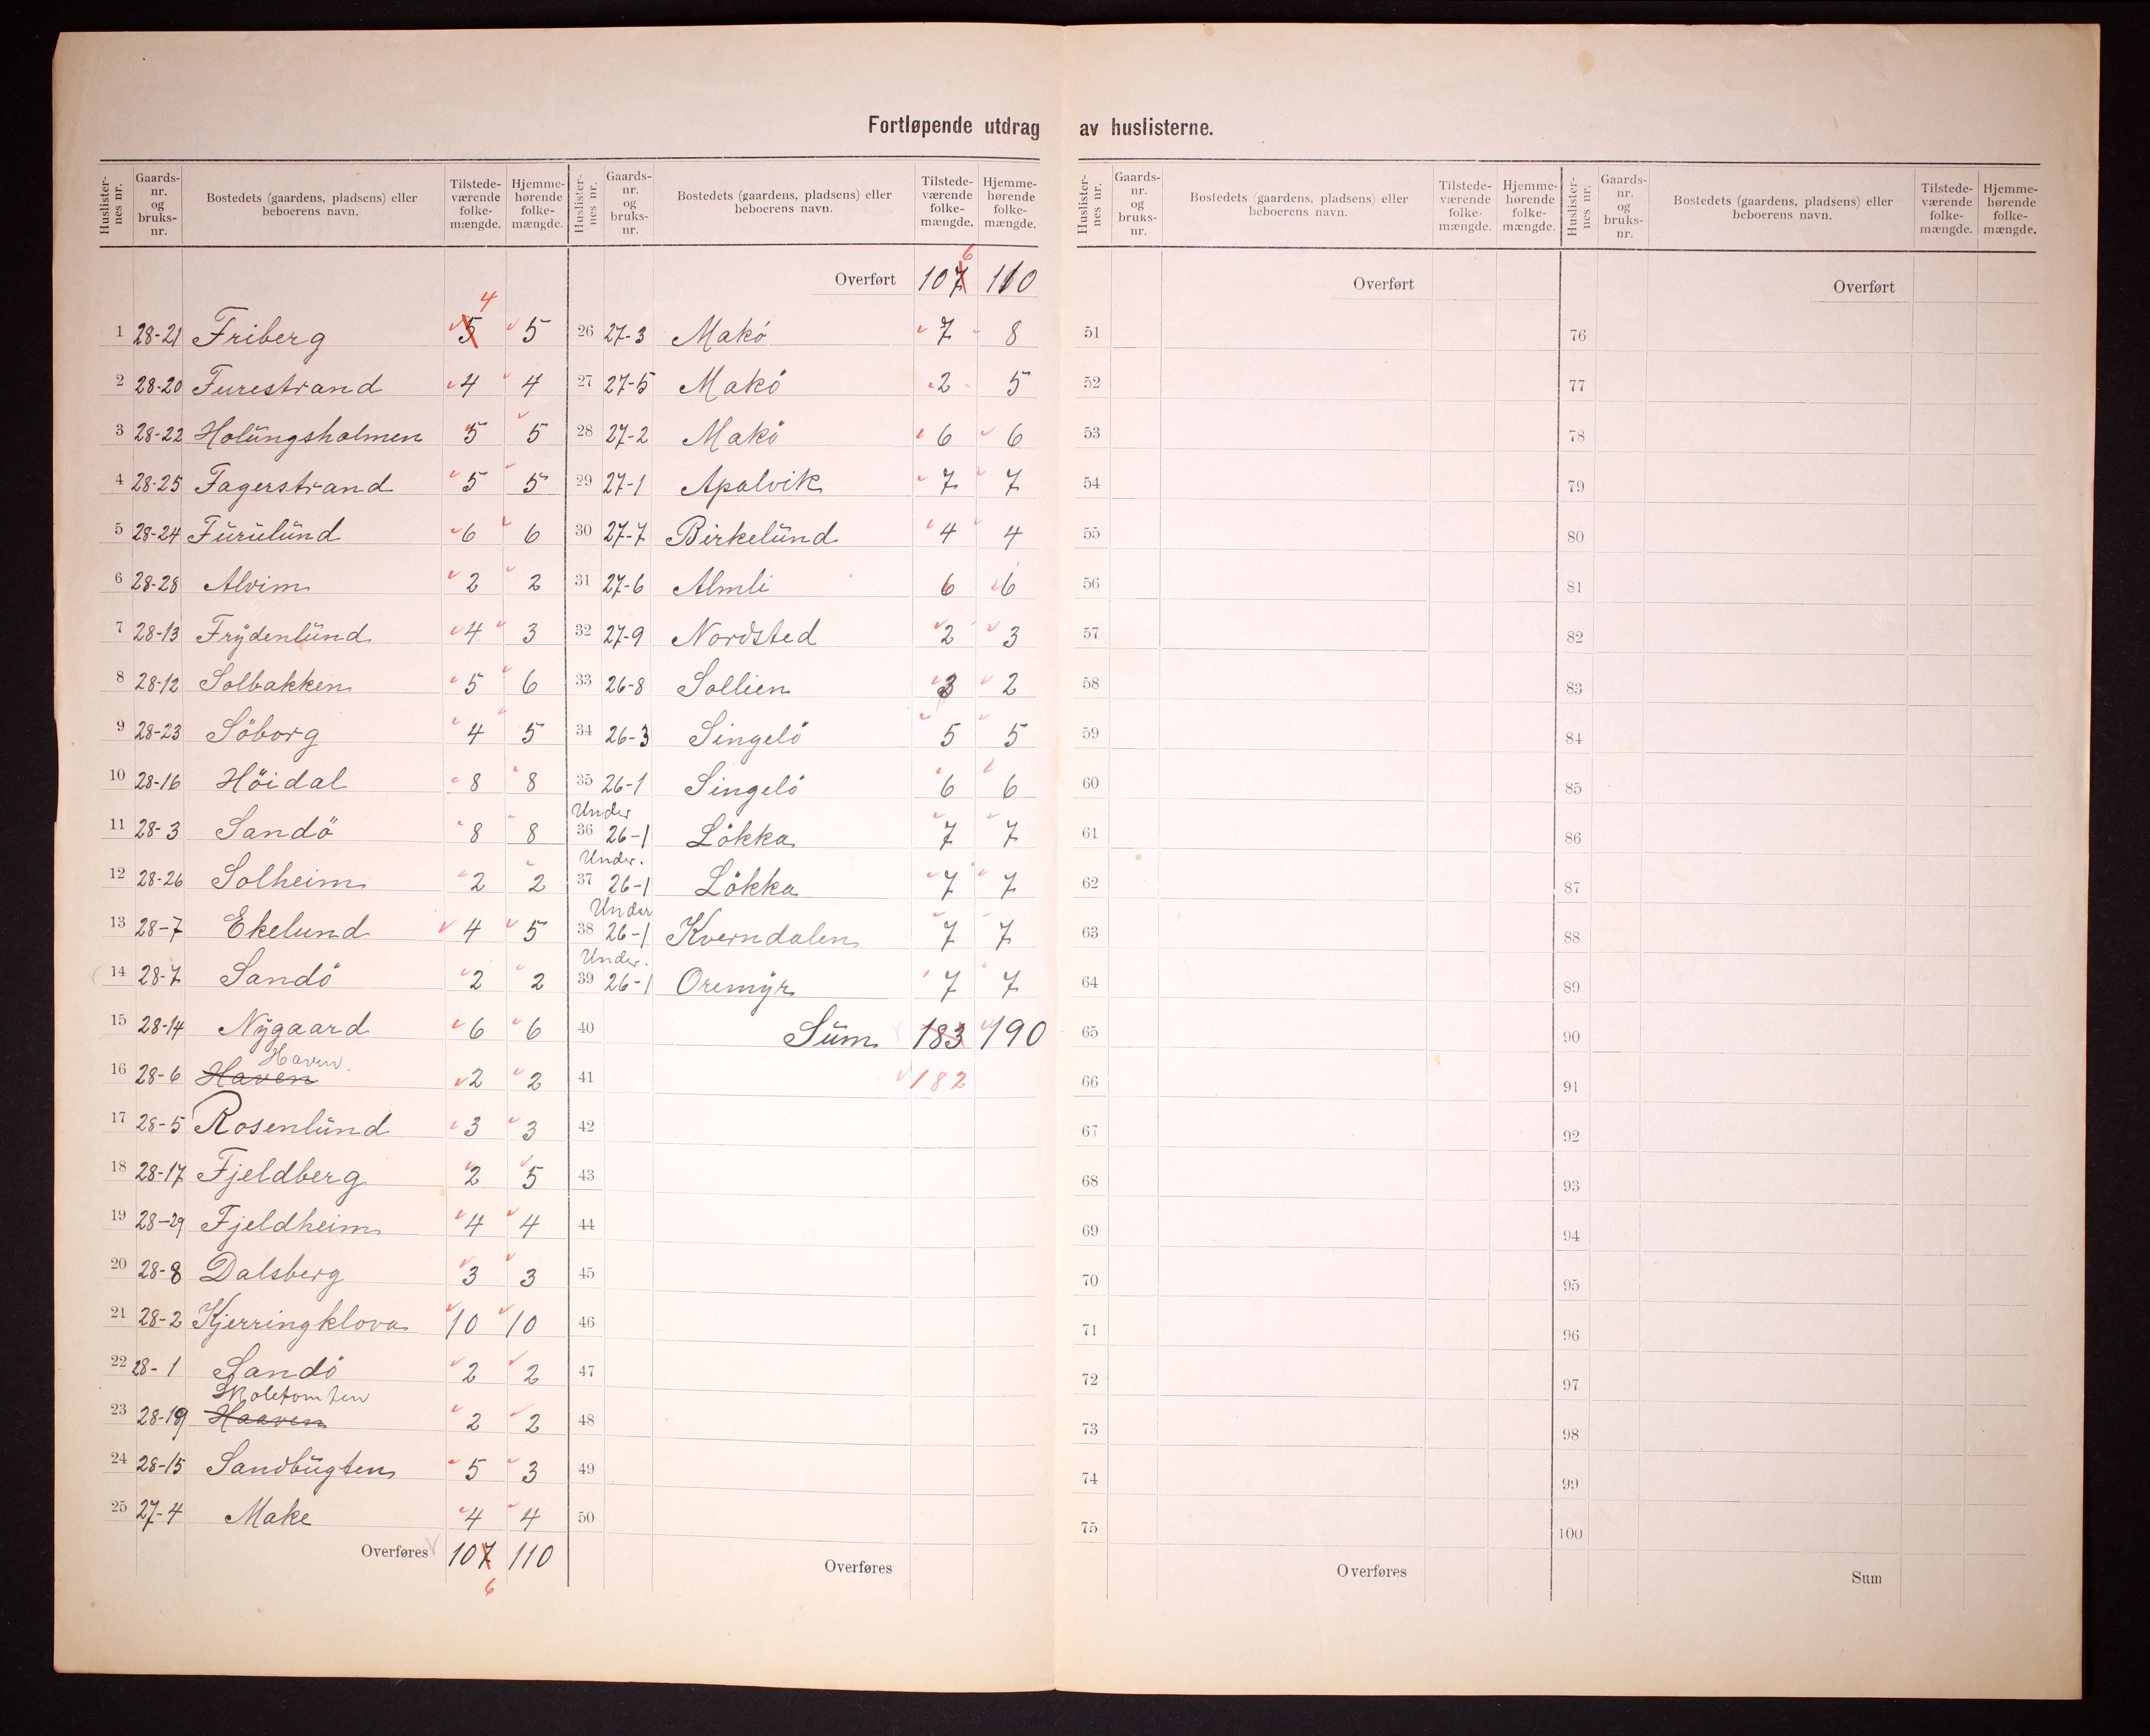 Fortløpende utdrag av huslisterne.
Huslister-nes nr. Gaards-nr. og bruks-nr. Bostedets (gaardens, pladsens) eller beboerens navn. Tilstede-værende folke-mængde. Hjemme-hørende folke-mængde.
4
1 28-21 Friberg 5 5
2 28-20 Furestrand 4 4
3 28-22 Holüngsholmen 5 5
4 28-25 Fagerstrand 5 5
5 28-24 Fürülünd 6 6
6 28-28 Alvim 2 2
7 28-13 Frÿdenlünd 4 3
8 28-12 Solbakken 5 6
9 28-23 Söborg 4 5
10 28-16 Höidal 8 8
11 28-3 Sandö 8 8
12 28-26 Solheim 2 2
13 28-7 Ekelund 4 5
14 28-7 Sandö 2 2
15 28-14 Nÿgaard 6 6
Haven.
16 28-6 Haven 2 2
17 28-5 Rosenlünd 3 3
18 28-17 Fjeldberg 2 5
19 28-29 Fjeldheim 4 4
20 28-8 Dalsberg 3 3
21 28-2 Kjerringklova 10 10
22 28-1 Sandö 2 2
Skoletomten
23 28-19 Haaven 2 2
24 28-15 Sandbügten 5 3
25 27-4 Make 4 4
Overføres 107 110
6
Huslister-nes nr. Gaards-nr. og bruks-nr. Bostedets (gaardens, pladsens) eller beboerens navn. Tilstede-værende folke-mængde. Hjemme-hørende folke-mængde.
6
Overført 107 110
26 27-3 Makö 7 8
27 27-5 Makö 2 5
28 27-2 Makö 6 6
29 27-1 Apalvik 7 7
30 27-7 Birkelünd 4 4
31 27-6 Almli 6 6
32 27-9 Nordsted 2 3
33 26-8 Sollien 3 2
34 26-3 Singelö 5 5
35 26-1 Singelö 6 6
Under
36 26-1 Lökka 7 7
Under.
37 26-1 Lökka 7 7
Under
38 26-1 Kverndalen 7 7
Under.
39 26-1 Oremÿr 7 7
40 Süm 183 190
41 182
42
43
44
45
46
47
48
49
50
Overføres
Huslister-nes nr. Gaards-nr. og bruks-nr. Bostedets (gaardens, pladsens) eller beboerens navn. Tilstede-værende folke-mængde. Hjemme-hørende folke-mængde.
Overført
51
52
53
54
55
56
57
58
59
60
61
62
63
64
65
66
67
68
69
70
71
72
73
74
75
Overføres
Huslister-nes nr. Gaards-nr. og bruks-nr. Bostedets (gaardens, pladsens) eller beboerens navn. Tilstede-værende folke-mængde. Hjemme-hørende folke-mængde.
Overført
76
77
78
79
80
81
82
83
84
85
86
87
88
89
90
91
92
93
94
95
96
97
98
99
100
Sum